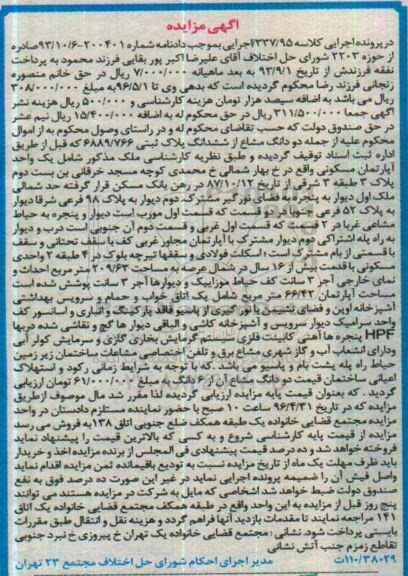 آگهی مزایده
در پرونده اجرایی کلاسه ۳۳۷/۹۵ اجرایی بموجب دادنامه شماره ۲۰۰۴۰۱-۹۳/۱۰/۶ صادره
از حوزه ۳۲۰۳ شورای حل اختلاف آقای علیرضا اکبر پور بقایی فرزند محمود به پرداخت
نفقه فرزندش از تاریخ ۹۳/۹/۱ به بعد ماهیانه ۷/۰۰۰/۰۰۰ ریال در حق خانم منصوره
زنجانی فرزند رضا محکوم گردیده است که بدهی وی تا ۹۶/۵/۱ به مبلغ ۳۰۸/۰۰۰/۰۰۰
ریال می باشد به اضافه سیصد هزار تومان هزینه کارشناسی و ۵۰۰/۰۰۰ ریال هزینه نشر
آگهی جمعا ۳۱۱/۵۰۰/۰۰۰ ریال در حق محکوم له به اضافه ۱۵/۴۰۰/۰۰۰ ریال نیم عشر
در حق صندوق دولت که حسب تقاضای محکوم له و در راستای وصول محکوم به از اموال
محکوم علیه از جمله دو دانگ مشاع از ششدانگ پلاک ثبتی ۶۸۸۹/۷۶۶ که قبل از طریق
اداره ثبت اسناد توقیف گردیده و طبق نظریه کارشناسی ملک مذکور شامل یک واحد
آپارتمان مسکونی واقع در خ بهار شمالی خ محمدی کوچه مسجد خرقانی بن بست دوم
پلاک ۳ طبقه ۲ شرقی از تاریخ ۸۷/۱۰/۱۲ در رهن بانک مسکن قرار گرفته حد شمالی
ملک اول دیوار به پنجره به فضای نورگیر مشترک دوم دیوار به پلاک ۹۸ فرعی شرقا دیوار
به پلاک ۵۲ فرعی جنوبا در دو قسمت که قسمت اول مورب است دیوار و پنجره به حیاط
مشاعی غربا در ۲ قسمت که قسمت اول غربی و قسمت دوم آن جنوبی است درب و دیوار
به راه پله اشتراکی دوم دیوار مشترک با آپارتمان مجاور غربی کف با سقف تحتانی و سقف
با قسمتی از بام مشترک است؛ اسکلت فولادی و سقفها تیرچه بلوک در ۴ طبقه ۲ واحدی
مسکونی با قدمت بیش از ۱۶ سال در شمال عرصه به مساحت ۲۰۹/۶۳ متر مربع احداث و
نمای خارجی آجر ۳ سانت کف حیاط موزاییک و دیوارها آجر ۳ سانت پوشش شده است
مساحت آپارتمان ۶۶/۴۲ متر مربع شامل یک اتاق خواب و حمام و سرویس بهداشتی
آشپزخانه اوپن و فضای نشیمن با نورگیری از پاسیو فاقد پارکینگ و انباری و آسانسور کف
واحد سرامیک دیوار سرویس و آشپزخانه کاشی و الباقی دیوار ها گچ و نقاشی شده دربها
HPF پنجره ها آهنی کابینت فلزی سیستم گرمایش بخاری گازی و سرمایش کولر آبی
ودارای انشعاب آب و گاز شهری مشاع برق و تلفن اختصاصی مشاعات ساختمان زیر زمین
حیاط راه پله پشت بام و پاسیو می باشد. که با توجه به شرایط زمانی رکود و استهلاک
اعیانی ساختمان قیمت دو دانگ مشاع آن از ۶ دانگ مبلغ ۶۱/۰۰۰/۰۰۰ تومان ارزیابی
گردید . که بعنوان قیمت پایه مزایده ارزیابی گردیده لذا مقرر شد مال موصوف ازطریق
مزایده که در تاریخ ۹۶/۴/۳۱ ساعت ۱۰ صبح با حضور نماینده مستلزم دادستان در واحد
مزایده مجتمع قضایی خانواده یک طبقه همکف ضلع جنوبی اتاق ۱۳۸ به فروش می رسد
مزایده از قیمت پایه کارشناسی شروع و به کسی که بالاترین قیمت را پیشنهاد نماید
فروخته خواهد شد و ده درصد قیمت پیشنهادی فی المجلس از برنده مزایده اخذ و خریدار
باید ظرف مهلت یک ماه از تاریخ مزایده نسبت به تودیع باقیمانده ثمن مزایده اقدام نماید
واصل فیش آن را ضمیمه پرونده اجرایی نماید در غیر این صورت ده درصد فوق به نفع
صندوق دولت ضبط خواهد شد اشخاصی که مایل به شرکت در مزایده هستند می توانند
پنج روز قبل از مزایده به این واحد واقع در طبقه همکف مجتمع قضایی خانواده یک اتاق
۱۴۱ مراجعه نمایند تا مقدمات بازدید آنها فراهم گردد و هزینه نقل و انتقال طبق مقررات
بایستی پرداخت شود. نشانی : مجتمع قضایی خانواده یک تهران خ پیروزی خ نبرد جنوبی
تقاطع زمزم جنب آتش نشانی
۱۱۰/۳۸۰۲۹ت مدیر اجرای احکام شورای حل اختلاف مجتمع ۲۳ تهران